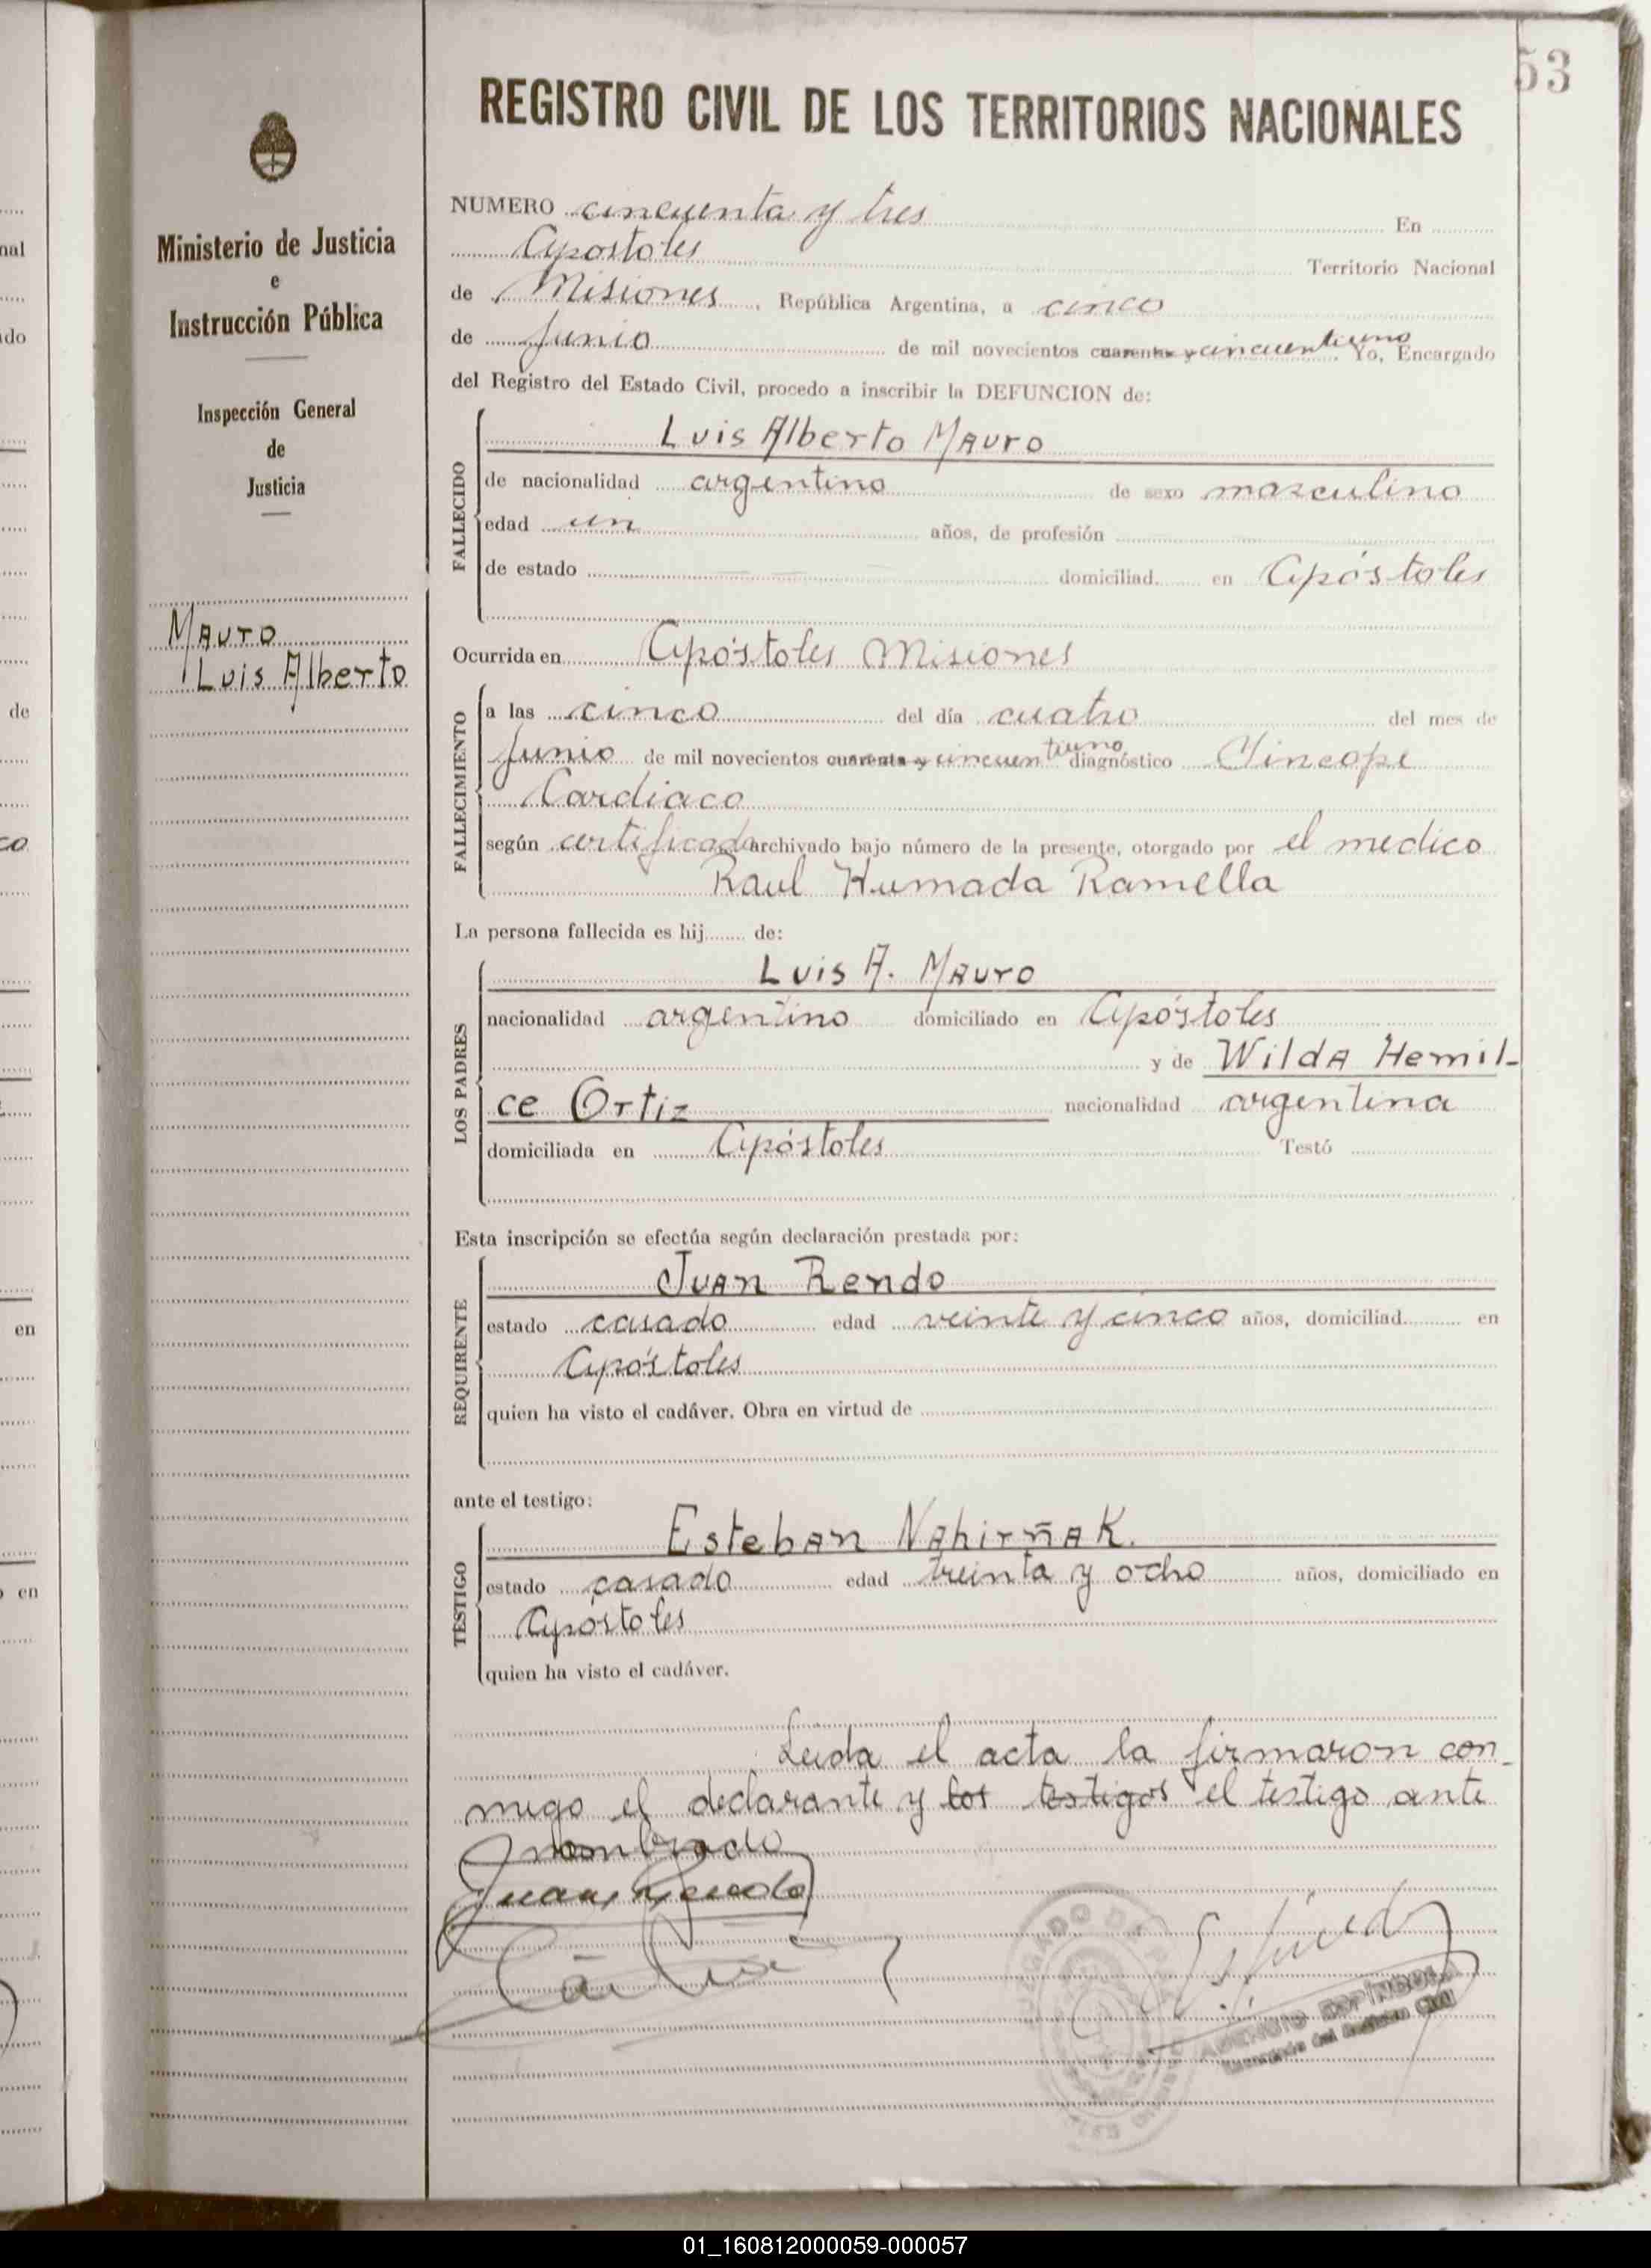 53
REGISTRO CIVIL DE LOS TERRITORIOS NACIONALES
Ministerio de Justicia
e
Instrucción Pública
Inspección General
de
Justicia
Mauro
Luis Alberto
NUMERO cincuenta y tres En
Apostoles Territorio Nacional
de Misiones, República Argentina, a cinco
de Junio de mil novecientos cuarenta y cincuentiuno Yo, Encargado
del Registro del Estado Civil, procedo a inscribir la DEFUNCION de:
FALLECIDO
Luis Alberto Mauro
de nacionalidad argentino de sexo masculino
edad un años, de profesión
de estado domiciliad en Apóstoles
Ocurrida en Apóstoles Misiones
FALLECIMIENTO
a las cinco del día cuatro del mes de
Junio de mil novecientos cuarenta y cincuentiuno diagnóstico Sincope
Cardiaco
según certificado archivado bajo número de la presente, otorgado por el medico
Raul Humada Ramella
La persona fallecida es hij de:
LOS PADRES
Luis A. Mauro
nacionalidad argentino domiciliado en Apóstoles
y de Wilda Hemil-
ce Ortiz nacionalidad argentina
domiciliada en Apóstoles Testó
Esta inscripción se efectúa según declaración prestada por:
REQUIRENTE
Juan Rendo
estado casado edad veinte y cinco años, domiciliad en
Apóstoles
quien ha visto el cadáver. Obra en virtud de
ante el testigo:
TESTIGO
Esteban Nahirñak.
estado casado edad treinta y ocho años, domiciliado en
Apóstoles
quien ha visto el cadáver.
Leida el acta la firmaron con-
migo el declarante y los testigos el testigo ante
nombrado
Juan Rendo
ESPÍNDOLA
Encargado del Registro Civil
nal
do
de
co
en
en
01_160812000059-000057